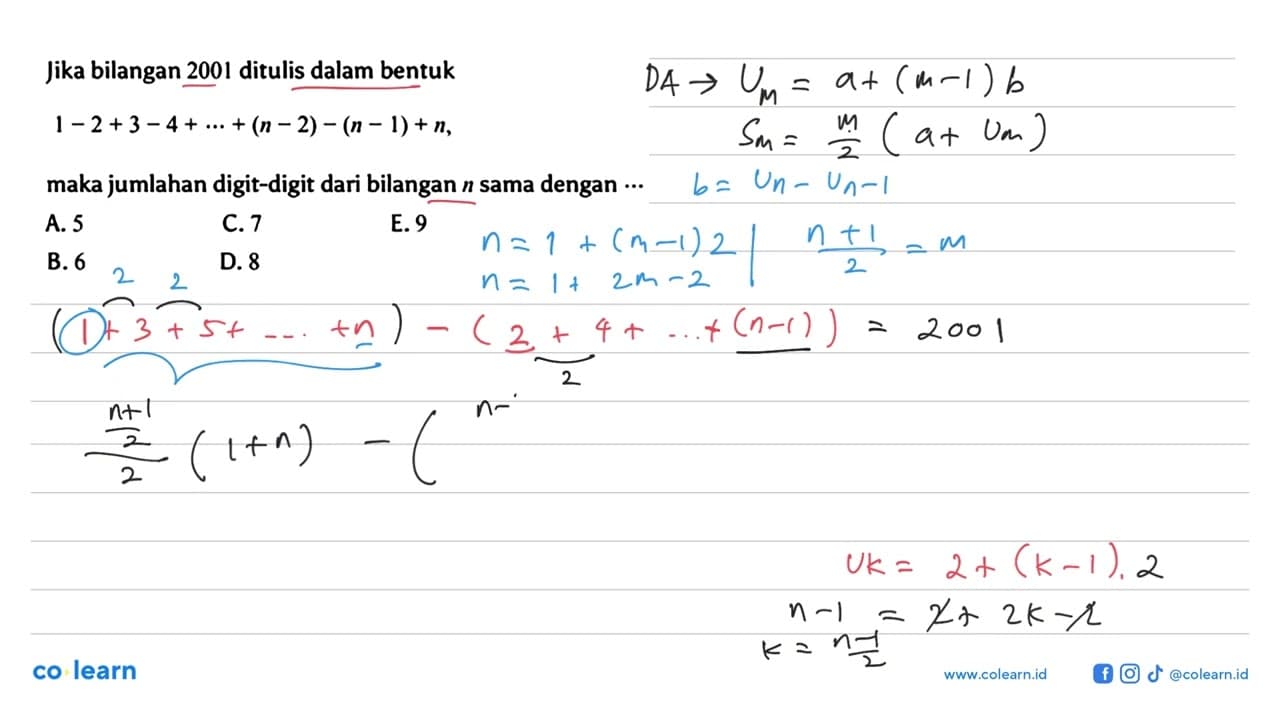 Jika bilangan 2001 ditulis dalam bentuk
1 − 2 + 3 − 4 + ⋯ + (n − 2) − (n − 1) + n,
maka jumlahan digit-digit dari bilangan n sama dengan ⋯
A. 5 C. 7 E. 9
B. 6 D. 8
DA → U_m = a + (m − 1) b
S_m = m/2 (a + U_m)
b = U_n − U_n−1
n = 1 + (m − 1) 2 | (n + 1)/2 = m
n = 1 + 2m − 2
2 2
(1 + 3 + 5 + .... + n) − (2 + 4 + ... + (n − 1)) = 2001
2
((n+1)/2)/2 (1 + n) − ( n −
Uk = 2 + (k − 1). 2
n − 1 = 2 + 2k − 2
k = (n − 1)/2
co learn
www.colearn.id @colearn.id